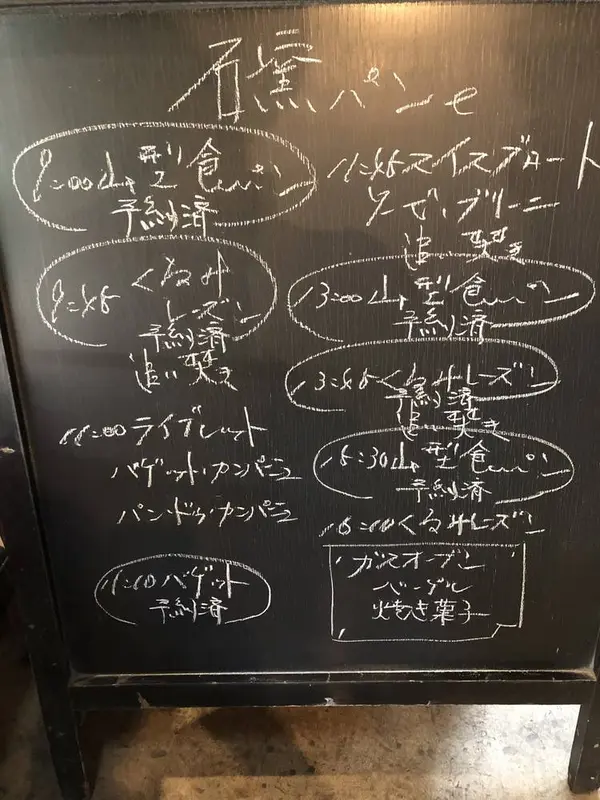 石窯パン
9:00山型食パン
予約済
9:45 くるみ
レーズン
予約済
追い焚き
11:00 ライブレット
バゲット・カンパーニュ
パン・ドゥ・カンパーニュ
11:10 バゲット
予約済
11:45スイスブロート
追い焚き
13:00山型食パン
予約済
13:45くるみレーズン
予約済
追い焚き
15:30山型食パン
予約済
16:10くるみレーズン
ガスオーブン
ベーグル
焼き菓子